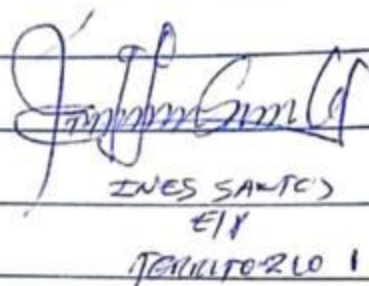 INES SANTOS
E/P
TERRITORIO 1